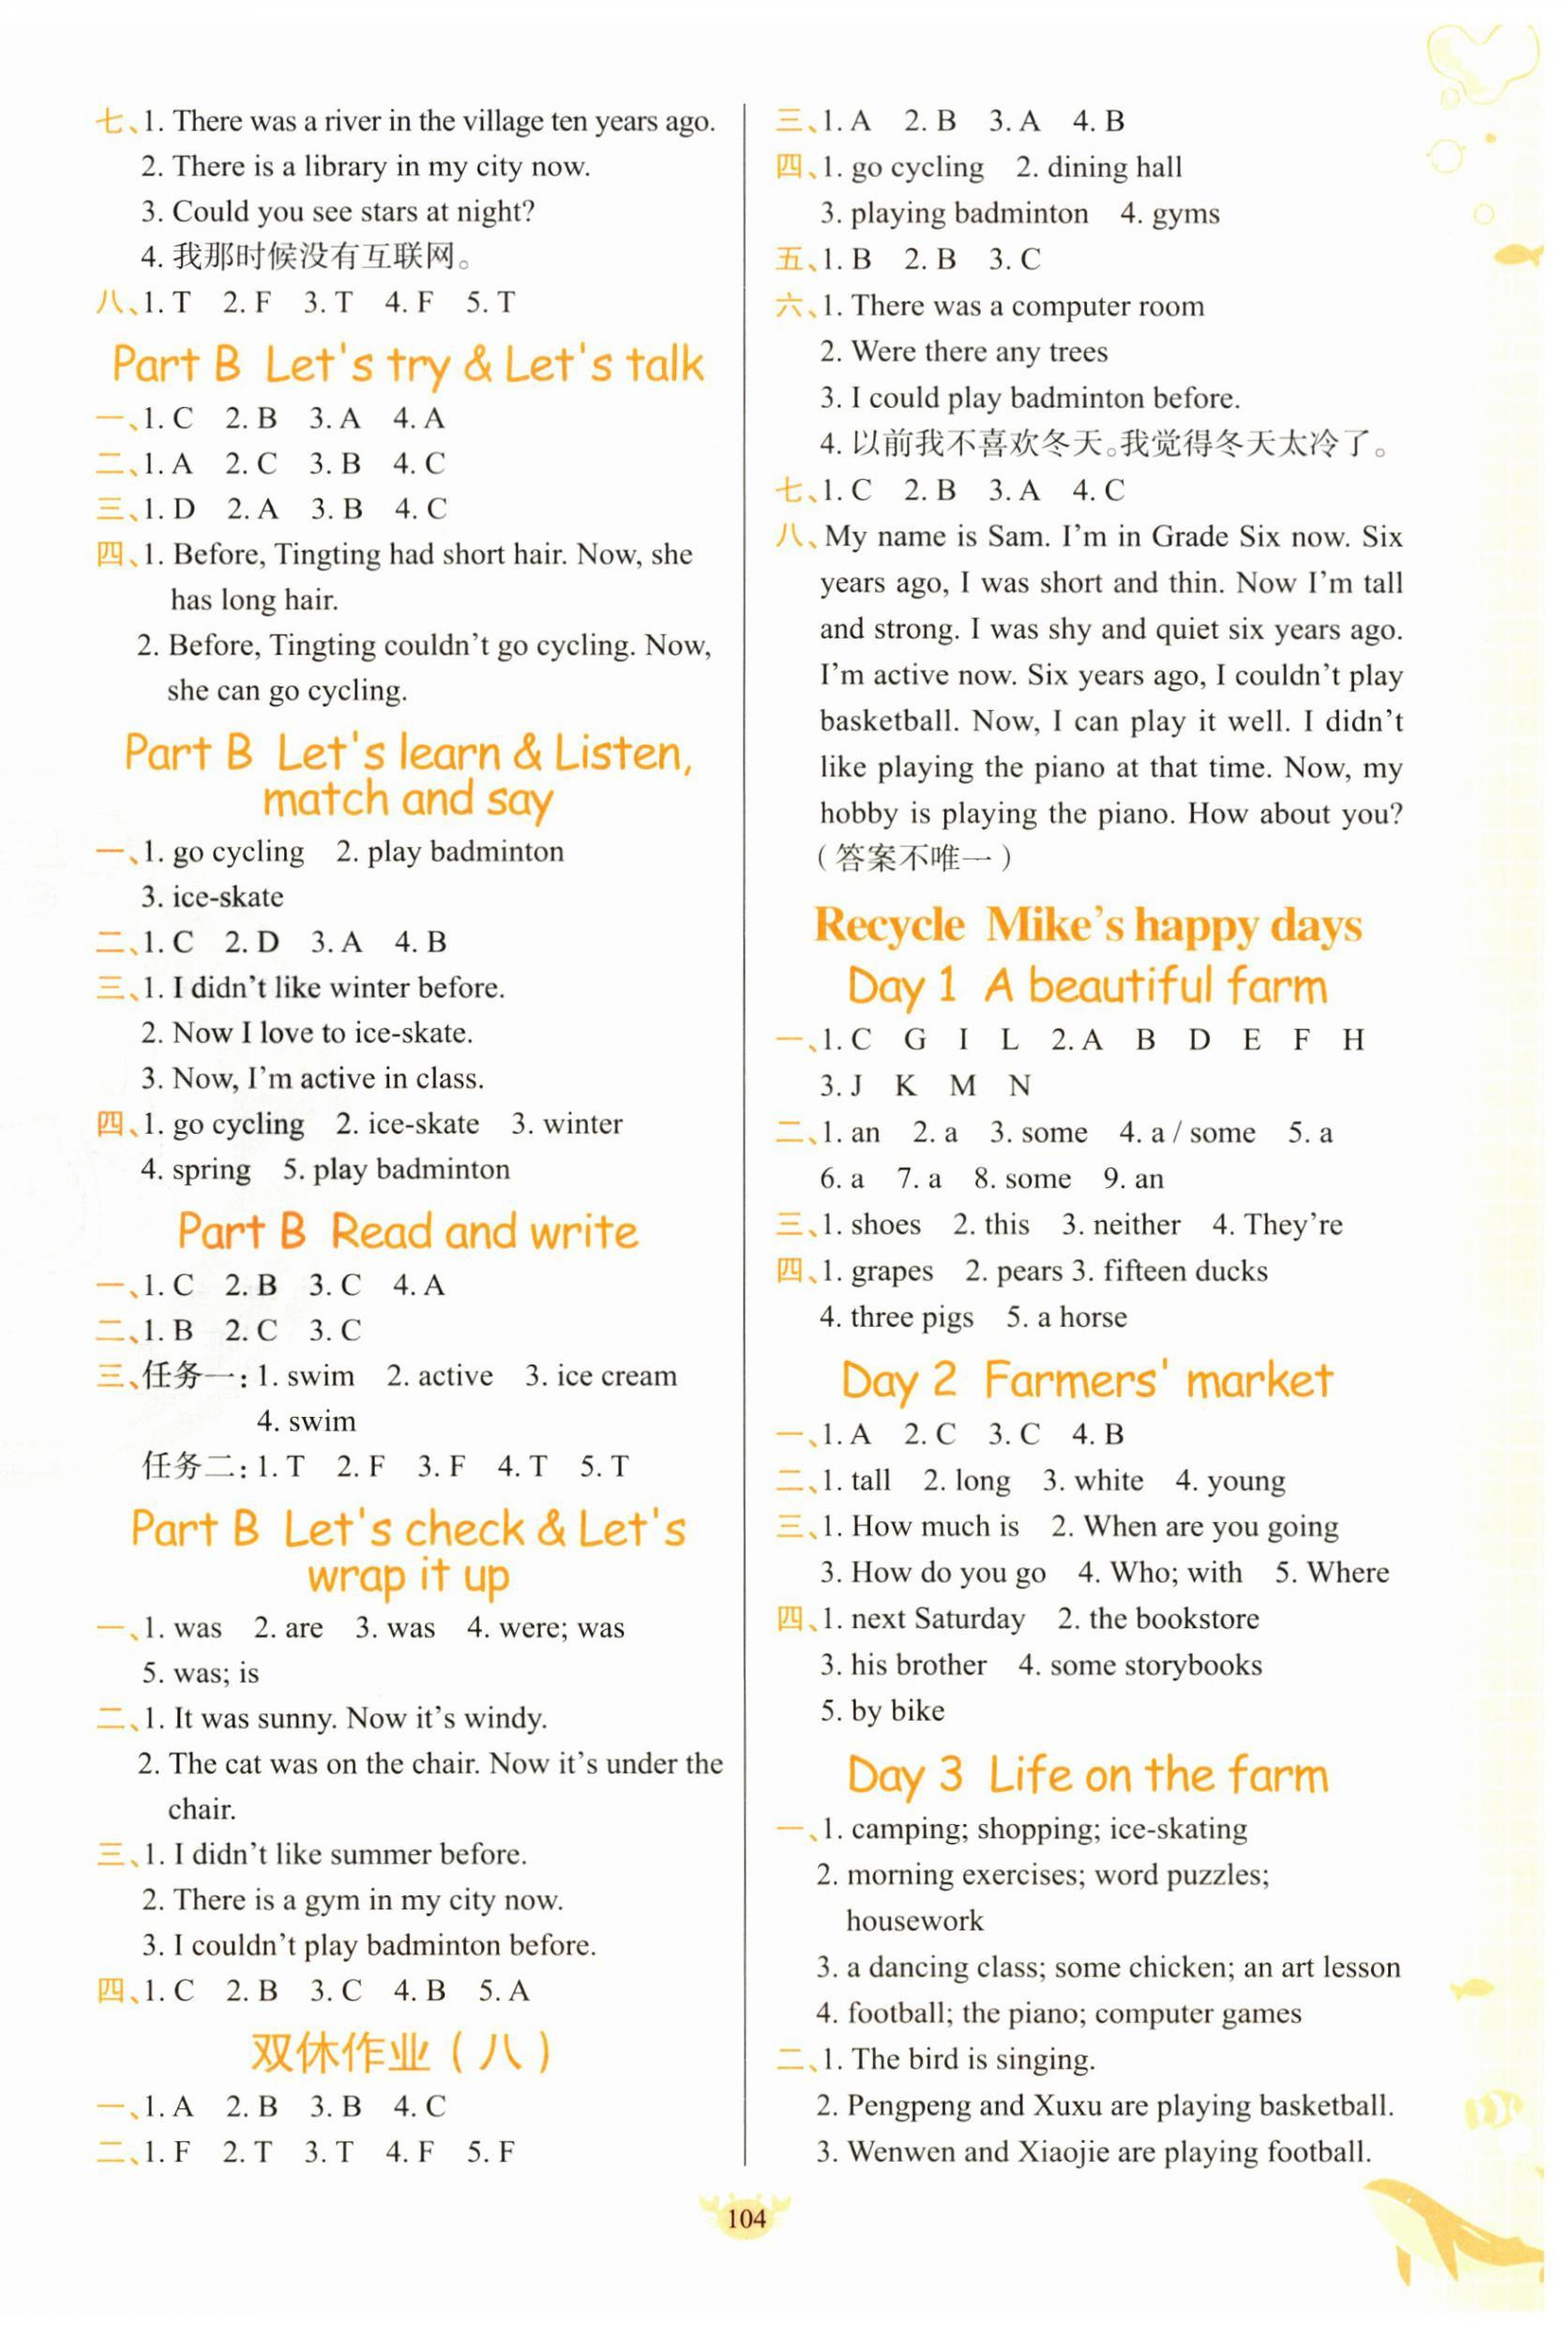 七、1. There was a river in the village ten years ago.
2. There is a library in my city now.
3. Could you see stars at night?
4. 我那时候没有互联网。
八、1. T 2. F 3. T 4. F 5. T
Part B Let's try & Let's talk
一、1. C 2. B 3. A 4. A
二、1. A 2. C 3. B 4. C
三、1. D 2. A 3. B 4. C
四、1. Before, Tingting had short hair. Now, she
has long hair.
2. Before, Tingting couldn't go cycling. Now,
she can go cycling.
Part B Let's learn & Listen,
match and say
一、1. go cycling 2. play badminton
3. ice-skate
二、1. C 2. D 3. A 4. B
三、1. I didn't like winter before.
2. Now I love to ice-skate.
3. Now, I'm active in class.
四、1. go cycling 2. ice-skate 3. winter
4. spring 5. play badminton
Part B Read and write
一、1. C 2. B 3. C 4. A
二、1. B 2. C 3. C
三、任务一: 1. swim 2. active 3. ice cream
4. swim
任务二: 1. T 2. F 3. F 4. T 5. T
Part B Let's check & Let's
wrap it up
一、1. was 2. are 3. was 4. were; was
5. was; is
二、1. It was sunny. Now it's windy.
2. The cat was on the chair. Now it's under the
chair.
三、1. I didn't like summer before.
2. There is a gym in my city now.
3. I couldn't play badminton before.
四、1. C 2. B 3. C 4. B 5. A
双休作业(八)
一、1. A 2. B 3. B 4. C
二、1. F 2. T 3. T 4. F 5. F
三、1. A 2. B 3. A 4. B
四、1. go cycling 2. dining hall
3. playing badminton 4. gyms
五、1. B 2. B 3. C
六、1. There was a computer room
2. Were there any trees
3. I could play badminton before.
4. 以前我不喜欢冬天。我觉得冬天太冷了。
七、1. C 2. B 3. A 4. C
八、My name is Sam. I'm in Grade Six now. Six
years ago, I was short and thin. Now I'm tall
and strong. I was shy and quiet six years ago.
I'm active now. Six years ago, I couldn't play
basketball. Now, I can play it well. I didn't
like playing the piano at that time. Now, my
hobby is playing the piano. How about you?
(答案不唯一)
Recycle Mike's happy days
Day 1 A beautiful farm
一、1. C G I L 2. A B D E F H
3. J K M N
二、1. an 2. a 3. some 4. a / some 5. a
6. a 7. a 8. some 9. an
三、1. shoes 2. this 3. neither 4. They're
四、1. grapes 2. pears 3. fifteen ducks
4. three pigs 5. a horse
Day 2 Farmers' market
一、1. A 2. C 3. C 4. B
二、1. tall 2. long 3. white 4. young
三、1. How much is 2. When are you going
3. How do you go 4. Who; with 5. Where
四、1. next Saturday 2. the bookstore
3. his brother 4. some storybooks
5. by bike
Day 3 Life on the farm
一、1. camping; shopping; ice-skating
2. morning exercises; word puzzles;
housework
3. a dancing class; some chicken; an art lesson
4. football; the piano; computer games
二、1. The bird is singing.
2. Pengpeng and Xuxu are playing basketball.
3. Wenwen and Xiaojie are playing football.
104